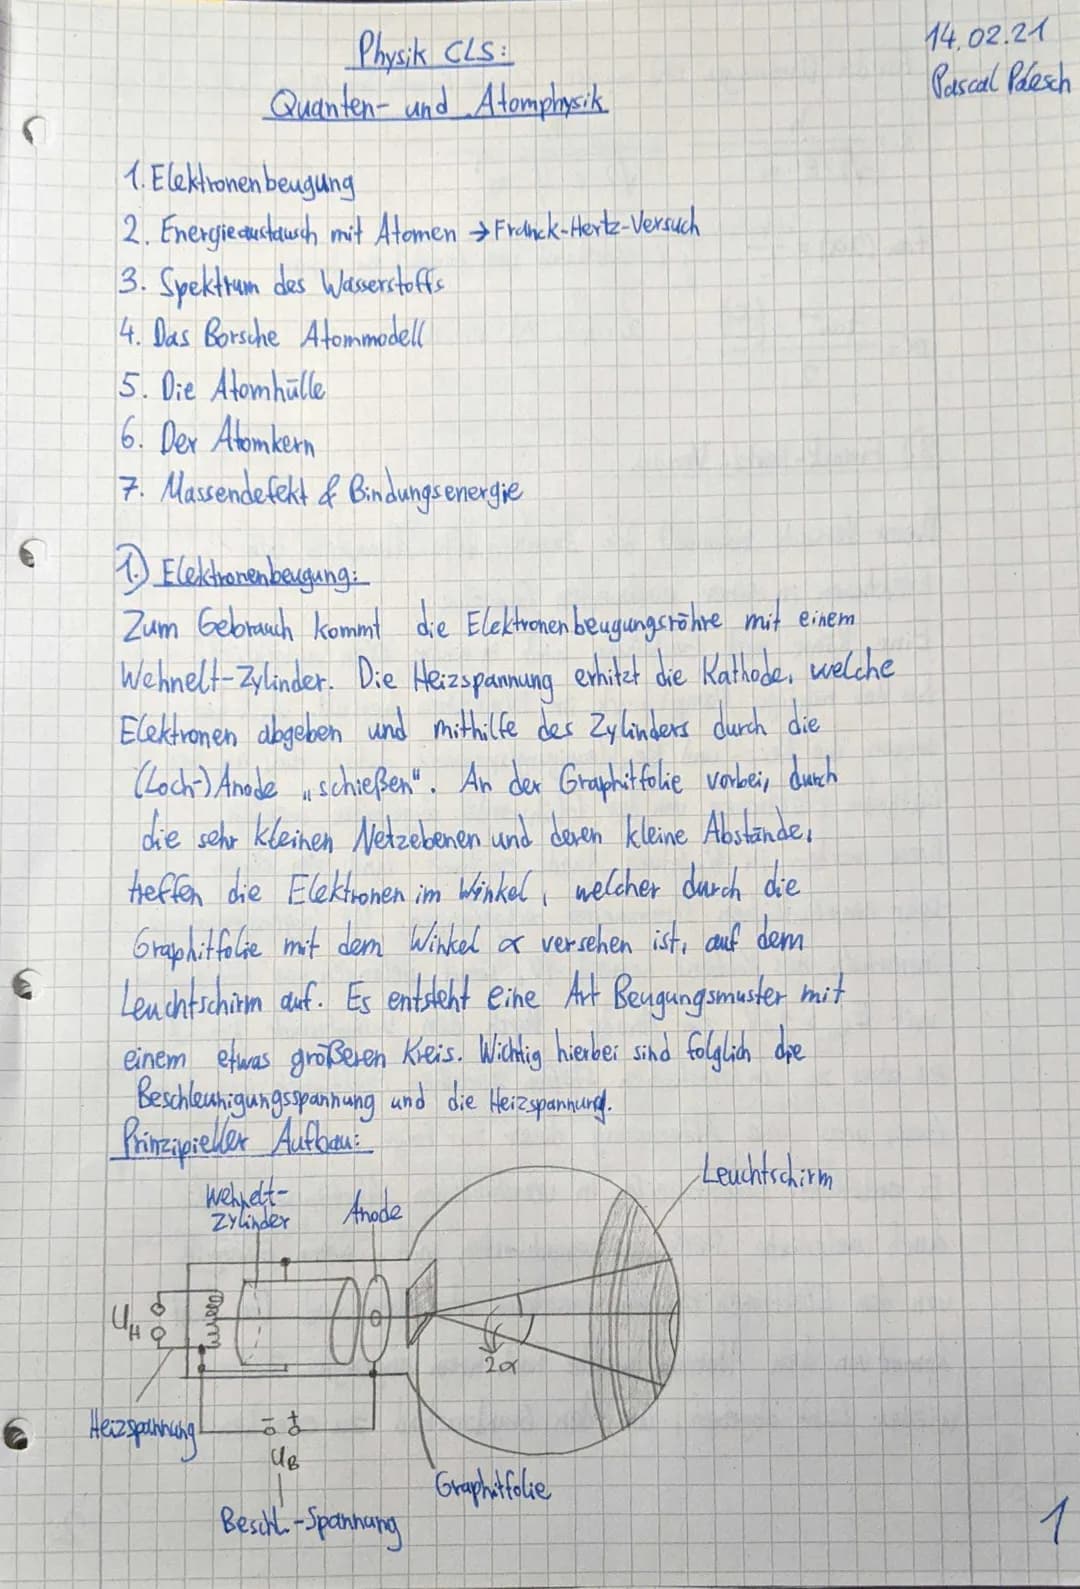 Physik CLS:
14.02.21
Quanten- und Atomphysik
Pascal
1. Elektronenbeugung
2. Energieaustausch mit Atomen → Franck-Hertz-Versuch
3. Spektrum des Wasserstoffs
4. Das Borsche Atommodell
5. Die Atomhülle
6. Der Atomkern
7. Massendefekt & Bindungsenergie
1.) Elektronenbeugung:
Zum Gebrauch kommt die Elektronenbeugungsröhre mit einem
Wehnelt-Zylinder. Die Heizspannung erhitzt die Kathode, welche
Elektronen abgeben und mithilfe des Zylinders durch die
(Loch-) Anode „schießen". An der Graphitfolie vorbei, durch
die sehr kleinen Netzebenen und deren kleine Abstände,
treffen die Elektronen im Winkel, welcher durch die
Graphitfolie mit dem Winkel α versehen ist, auf dem
Leuchtschirm auf. Es entsteht eine Art Beugungsmuster mit
einem etwas größeren Kreis. Wichtig hierbei sind folglich die
Beschleunigungsspannung und die Heizspannung.
Prinzipieller Aufbau:
Leuchtschirm
Wehnelt-
Zylinder
Anode
U_H
2α
Heizspannung
- +
U_B
Graphitfolie
Beschl.-Spannung
1